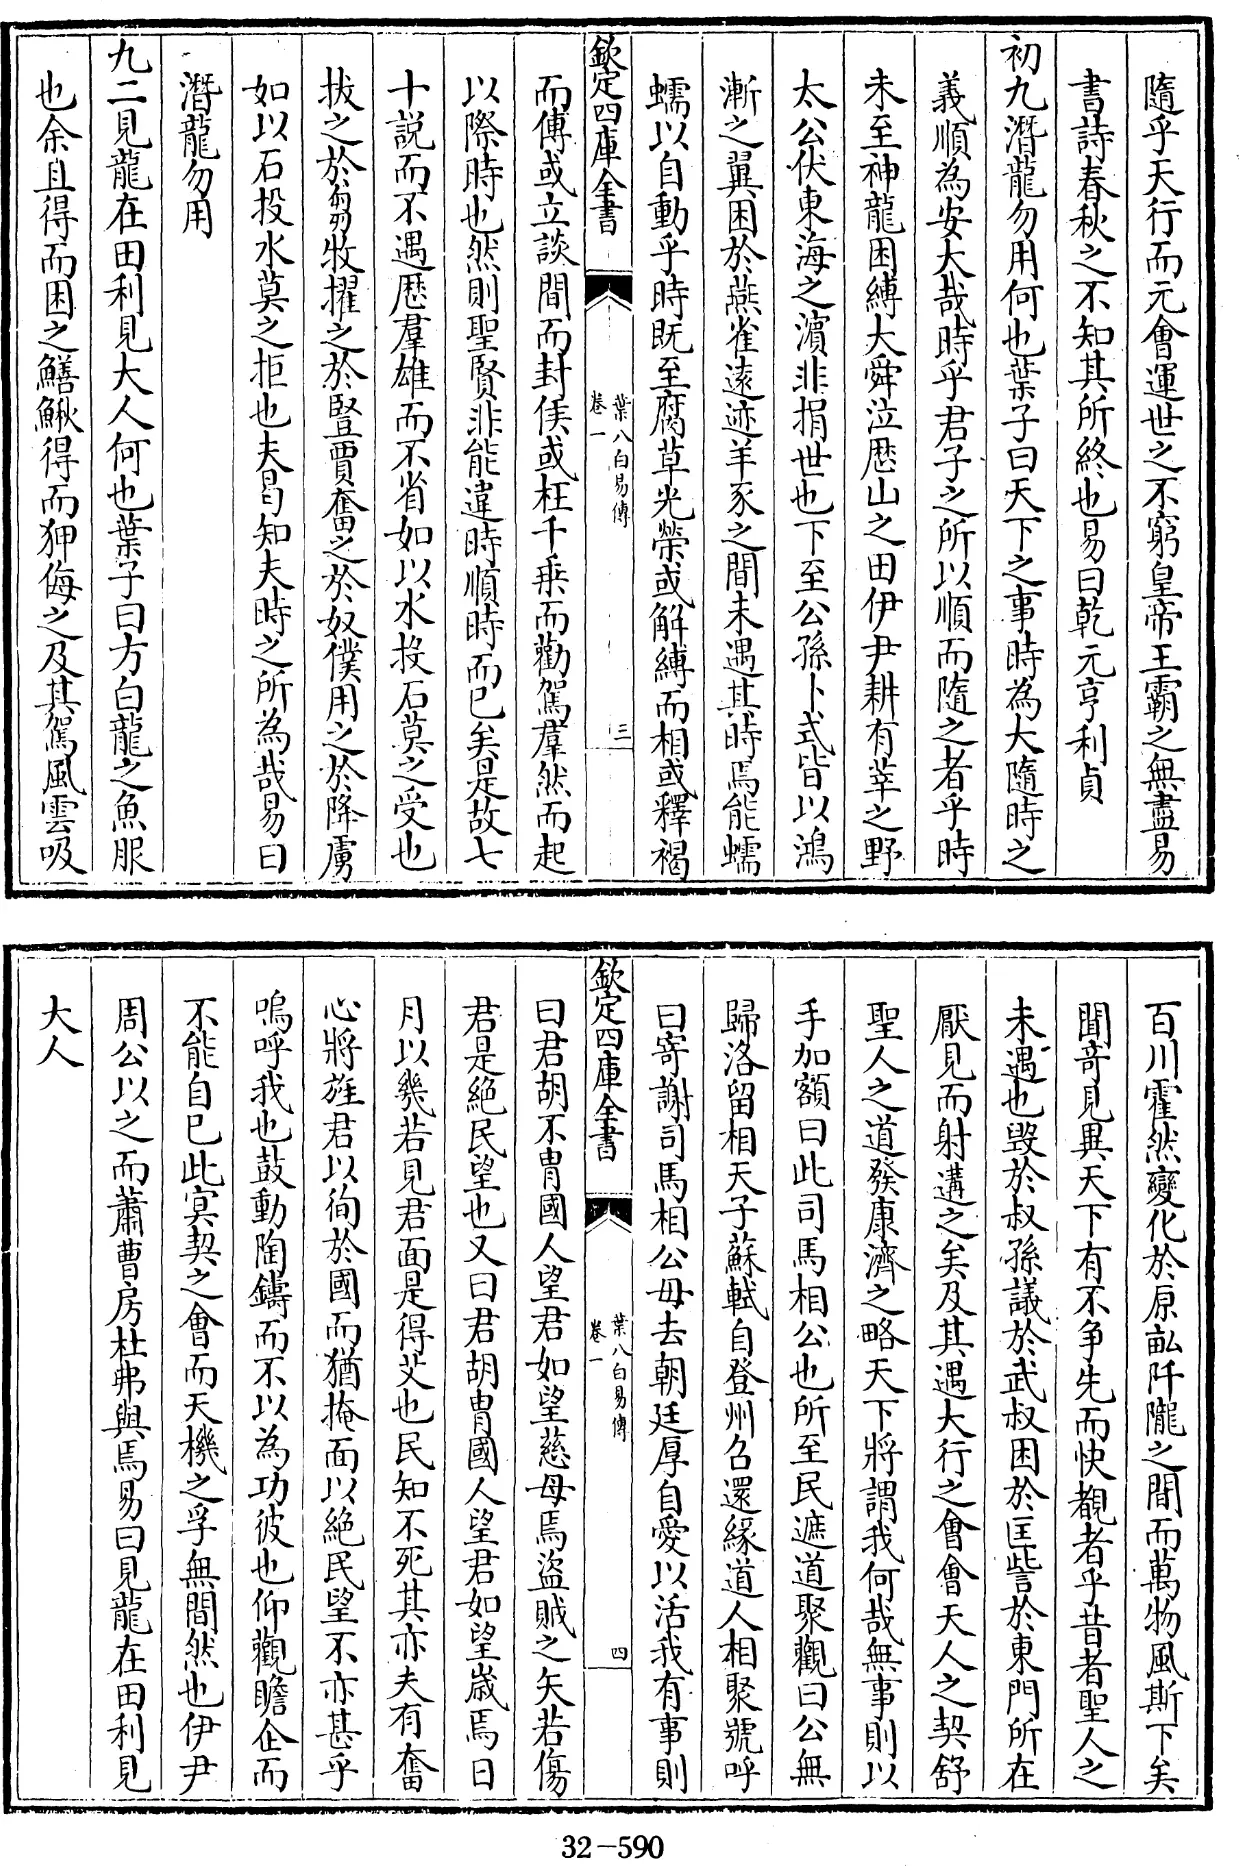 隨乎天行而元會運世之不窮皇帝王霸之無盡易
書詩春秋之不知其所終也易曰乾元亨利貞
初九潛龍勿用何也葉子曰天下之事時為大隨時之
義順為安大哉時乎君子之所以順而隨之者乎時
未至神龍困縛大舜泣歴山之田伊尹耕有莘之野
太公伏東海之濵非捐世也下至公孫卜式皆以鴻
漸之翼困於燕雀逺迹羊豕之間未遇其時焉能蠕
蠕以自動乎時既至腐草光榮或解縛而相或釋褐
欽定四庫全書
葉八白易傳
卷一
三
而傅或立談間而封侯或枉千乗而勸駕羣然而起
以際時也然則聖賢非能違時順時而已矣是故七
十説而不遇歴羣雄而不省如以水投石莫之受也
拔之於芻牧擢之於豎賈奮之於奴僕用之於降虜
如以石投水莫之拒也夫曷知夫時之所為哉易曰
潛龍勿用
九二見龍在田利見大人何也葉子曰方白龍之魚服
也余且得而困之鱔鰍得而狎侮之及其駕風雲吸
百川霍然變化於原畝阡隴之間而萬物風斯下矣
聞竒見異天下有不争先而快覩者乎昔者聖人之
未遇也毁於叔孫議於武叔困於匡訾於東門所在
厭見而射遘之矣及其遇大行之會會天人之契舒
聖人之道發康濟之略天下將謂我何哉無事則以
手加額曰此司馬相公也所至民遮道聚觀曰公無
歸洛留相天子蘇軾自登州召還縁道人相聚號呼
曰寄謝司馬相公毋去朝廷厚自愛以活我有事則
欽定四庫全書
葉八白易傳
卷一
四
曰君胡不胄國人望君如望慈母焉盜賊之矢若傷
君是絶民望也又曰君胡胄國人望君如望嵗焉日
月以幾若見君面是得艾也民知不死其亦夫有奮
心將旌君以徇於國而猶掩面以絶民望不亦甚乎
嗚呼我也鼓動陶鑄而不以為功彼也仰觀瞻企而
不能自已此㝠契之會而天機之孚無間然也伊尹
周公以之而蕭曹房杜弗與焉易曰見龍在田利見
大人
32-590